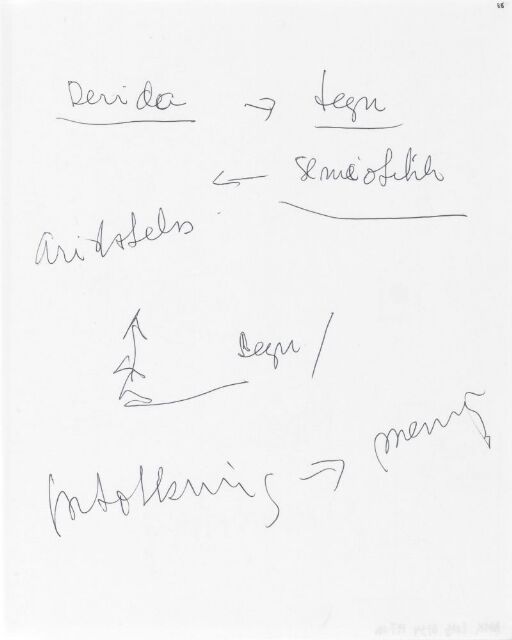 Derida → tegn
← semiotikk
Aristoteles
tegn /
fortolkning → mening